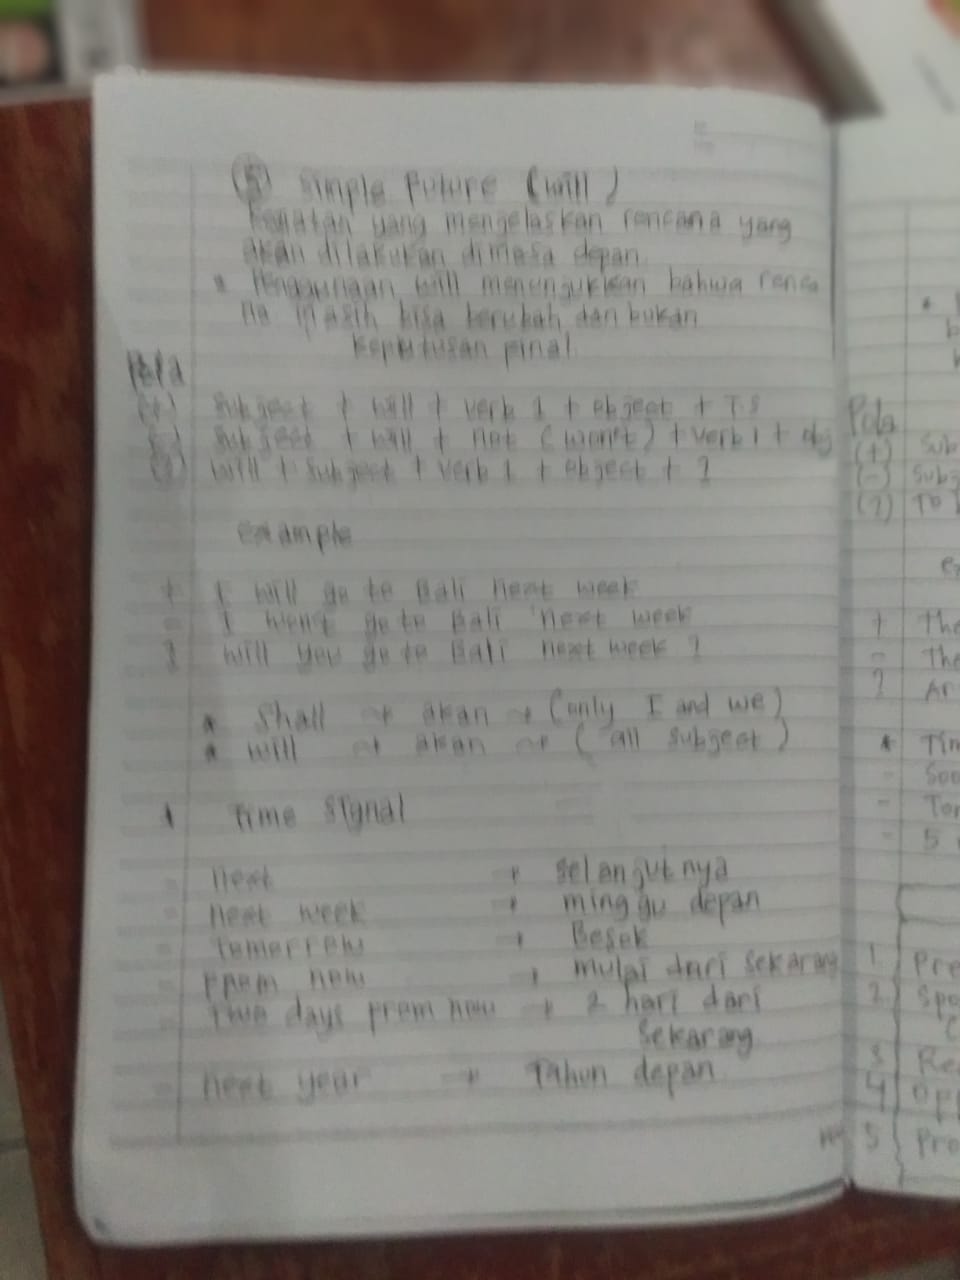 (5) Simple Future (will)
Kegiatan yang mengelaskan rencana yang
akan dilakukan dimasa depan.
* Penggunaan will menengukkan bahwa renca
na masih bisa berubah dan bukan
keputusan final.
Pola
(+) Subject + will + verb 1 + object + T.S
(-) Subject + will + not (won't) + verb 1 + obj
(?) Will + subject + verb 1 + object + ?
Example
+ I will go to Bali next week
- I won't go to Bali next week
? Will you go to Bali next week ?
* Shall → akan → (only I and we)
* will → akan → ( all subject )
* Time signal
- Next → selanjutnya
- Next week → minggu depan
- Tomorrow → Besok
- From now → mulai dari sekarang
- Two days from now → 2 hari dari
sekarang
- Next year → Tahun depan
Pola
(+) Sub
(-) Subj
(?) To
+ The
- The
? Ar
* Tim
- Soo
- Tom
- 5
1. Pre
2. Spo
3 Re
4 Opp
5 Pro